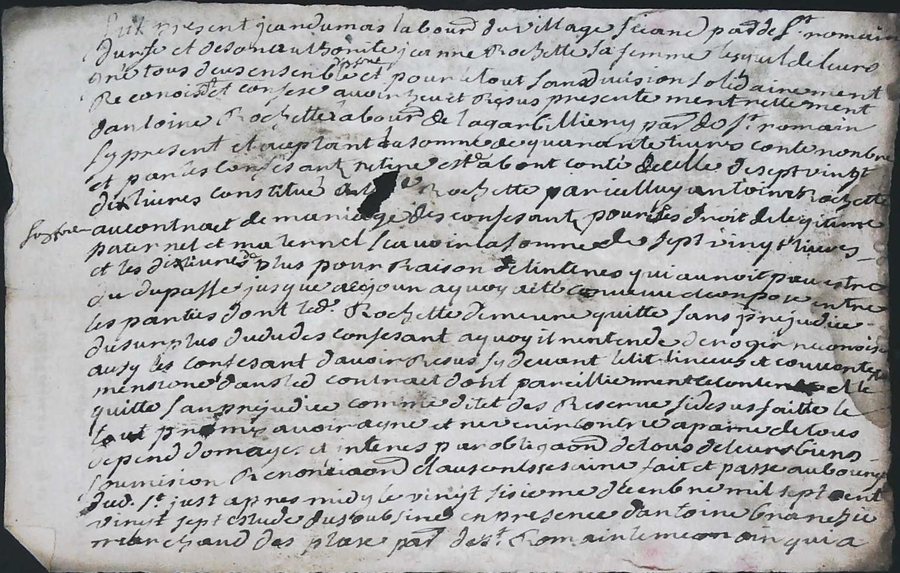 fut present jean dumas laboureur du village sicand par de St romain
et de son authorite jeanne Rochette sa femme lesquels de leurs
gre tous deux ensemble et pour le tout sans division solidairement
Reconoist et confese avoir heu et Resus presentement reellement
d'antoine Rochette laboureur de lagarbilliery par de St romain
sy present et aceptant la somme de quarante livres conte nonbre
et par les confesant retiré est abont conte de celle de sept vingt
dix livres constitué Rochette par celluy antoine Rochette
au contract de mariage des confesant pour ses droit de legitime
paternel et maternel scavoir la somme de sept vingt livres
et les dix livres plus pour Raison de linteres qui auroit peu estre
du du passe jusque a ce jour a quoy a ité convenu et conpose entre
les parties dont led. Rochette demeure quitte sans prejudice
du surplus dud confesant a quoy il n'entend deroger reconois
ausy les confesant d'avoir Resus sy devant le lit linceus et couverte
mensioné dans led contract dont pareilliement se contente et le
quitte sans prejudice comme dit et des Reserve sy desus faitte le
tout promis avoir agre et ne venir contre a paine de tous
depend domages et interes par obligaon de tous de leurs biens
soumision Renonciaon clauses fait et passe au bourg
dud. St just apres midy le vingt sisieme desenbre mil sept cent
vingt sept estude du soubsine en presence d'antoine
marchand des place par de St Romain le mean qui a